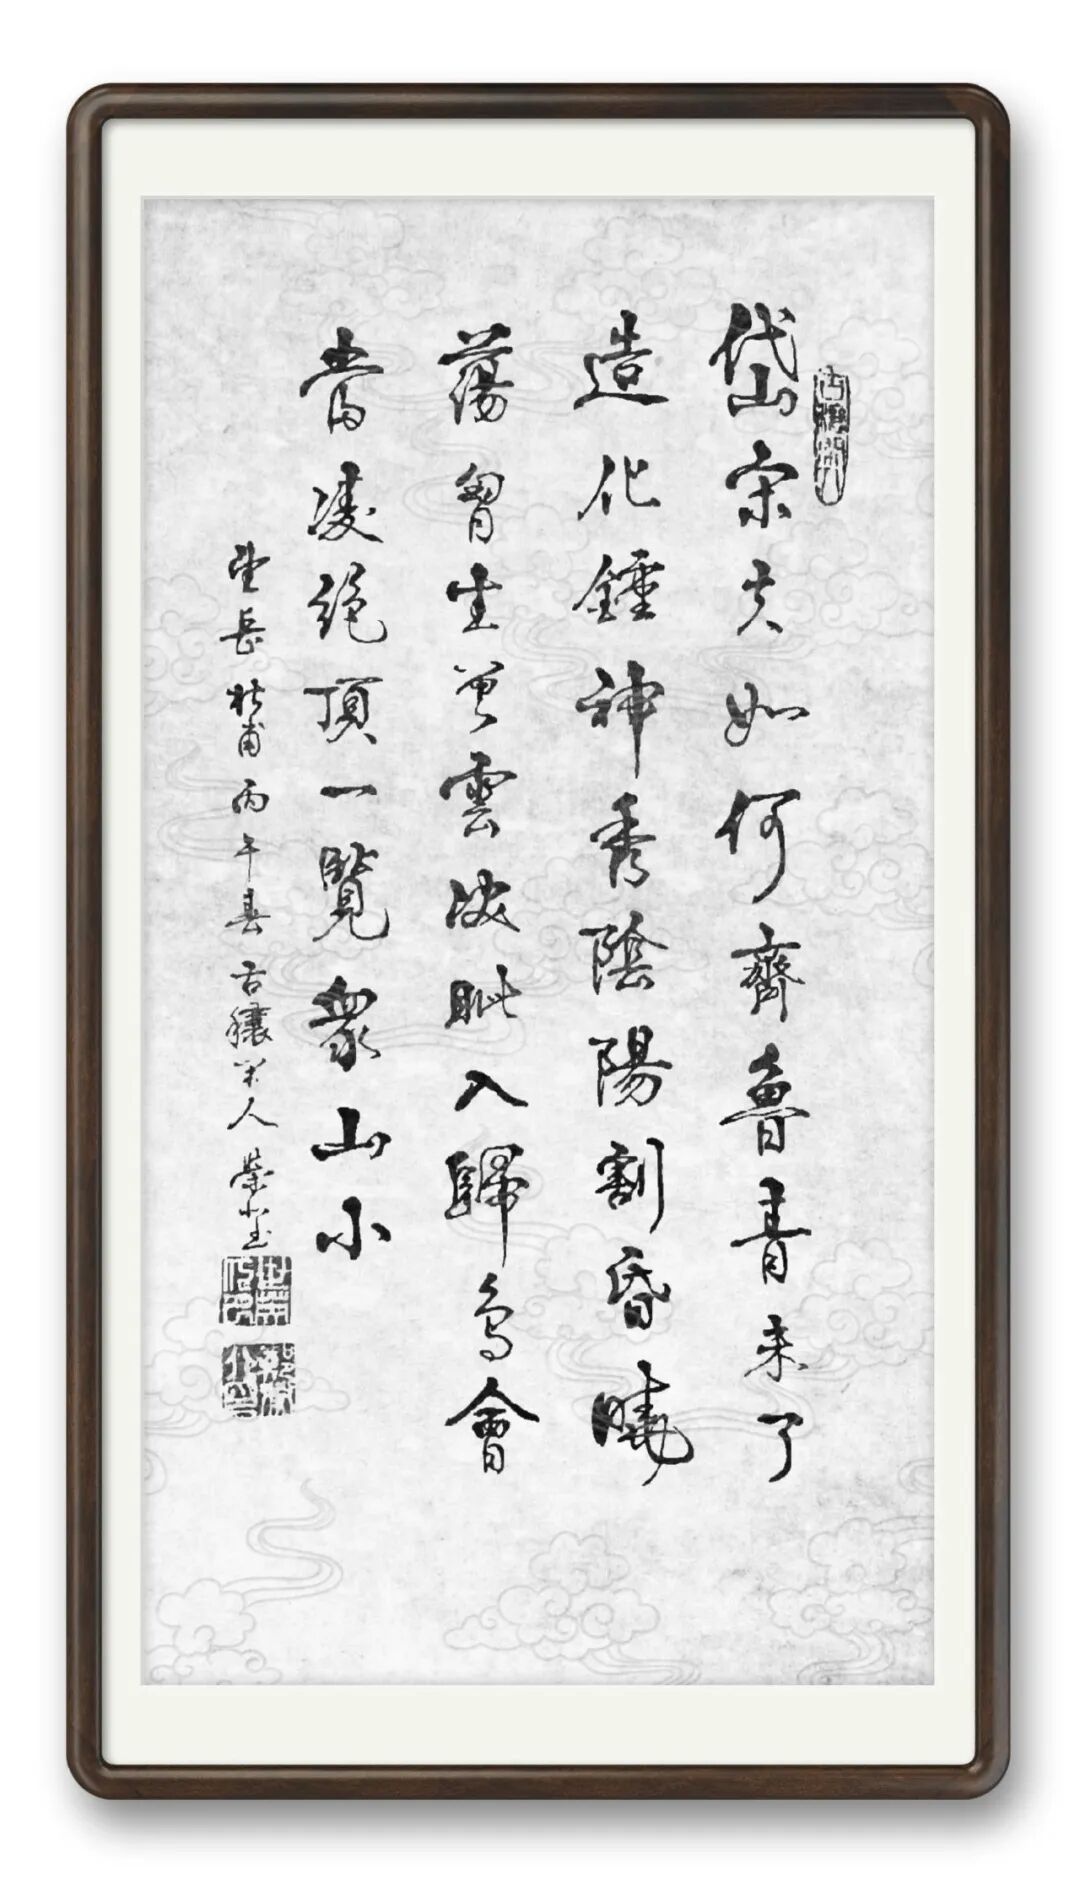 岱宗夫如何齊魯青未了
造化鍾神秀陰陽割昏曉
蕩胷生曾雲決眦入歸鳥會
當凌絕頂一覽衆山小
望岳杜甫丙午春古穰人